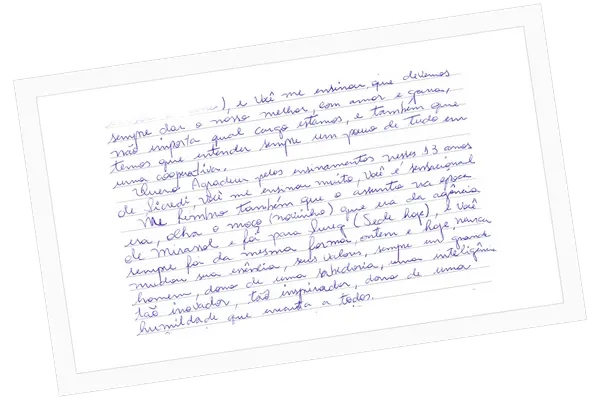 ), e Você me ensinou que devemos
sempre dar o nosso melhor, com amor e gana,
não importa qual cargo estamos, e também que
temos que entender sempre um pouco de tudo em
uma cooperativa.
Quero Agradecer pelos ensinamentos nesses 13 anos
de Sicredi, Você me ensinou muito, Você é sensacional
Me lembro também que o assunto na época
era, olha o moço (novinho) que era da agência
de Mirassol e foi para (Sede hoje), e Você
sempre foi da mesma forma, ontem e hoje, nunca
mudou sua essência, seus valores, sempre um grande
homem, dono de uma sabedoria, uma inteligência
tão inovador, tão inspirador, dono de uma
humildade que encanta a todos.